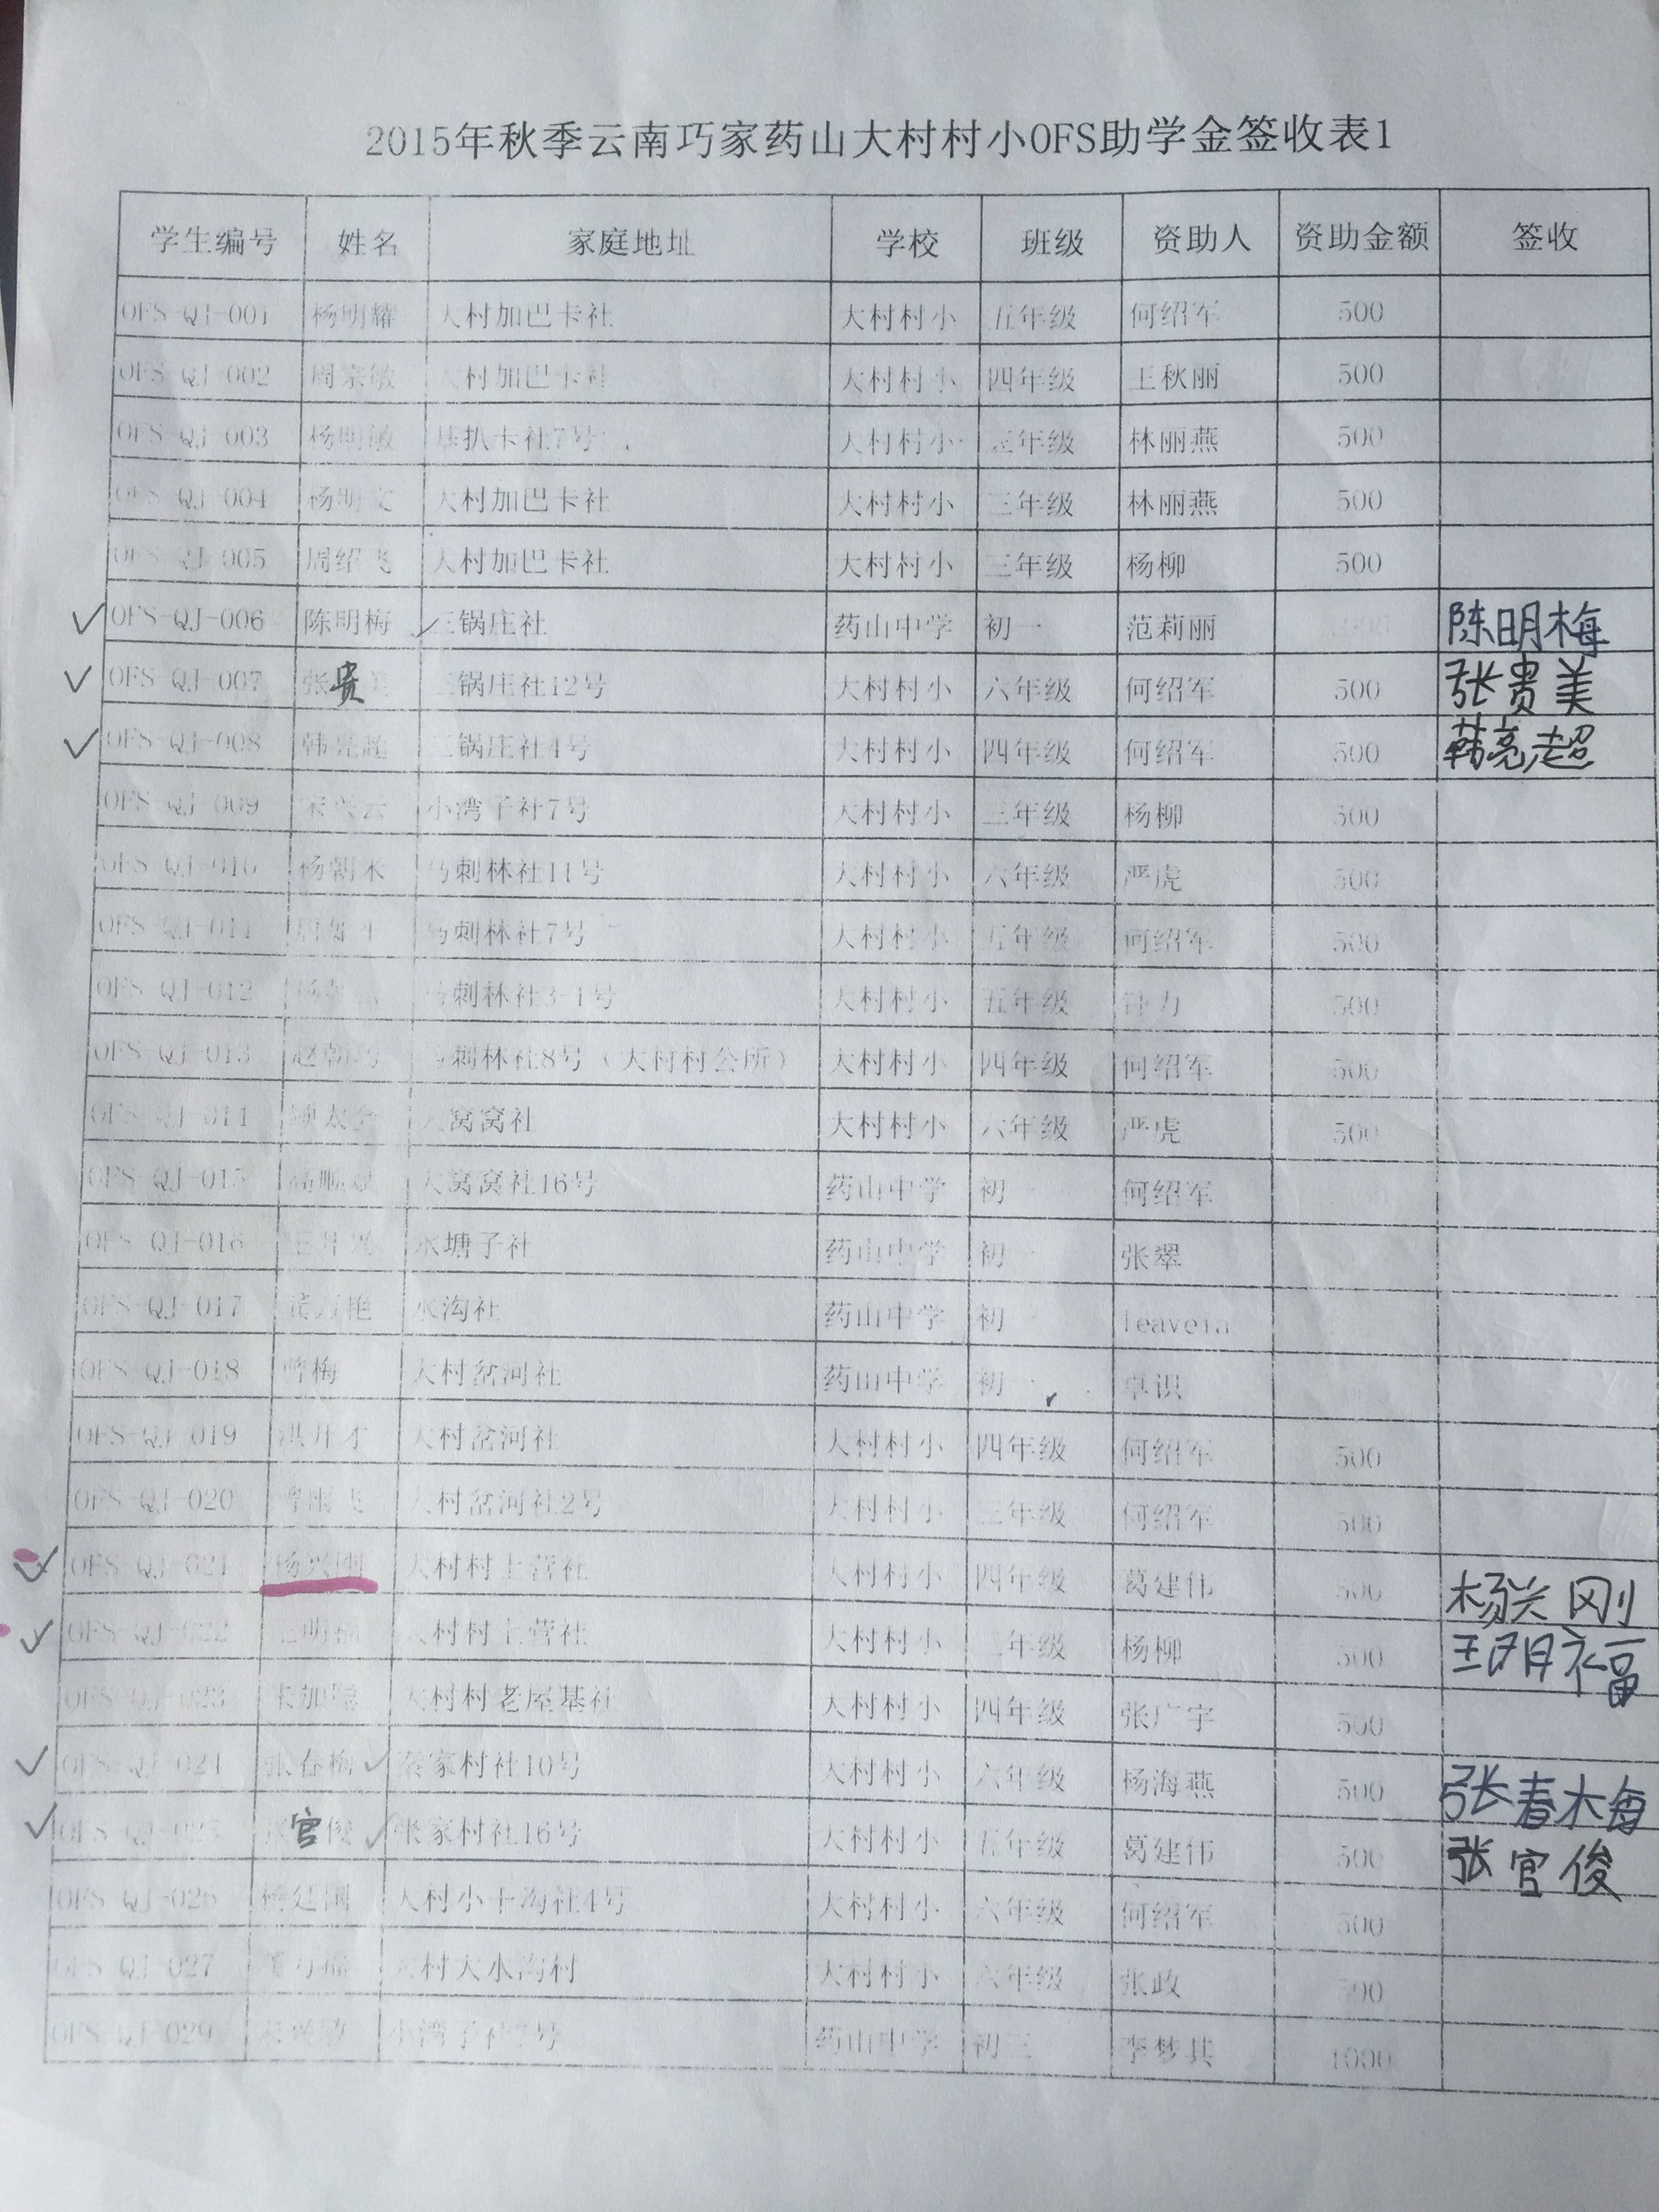 2015年秋季云南巧家药山大村村小OFS助学金签收表1
学生编号 姓名 家庭地址 学校 班级 资助人 资助金额 签收
OFS-QJ-001 杨明耀 大村加巴卡社 大村村小 五年级 何绍军 500
OFS-QJ-002 周宗敏 大村加巴卡社 大村村小 四年级 王秋丽 500
OFS-QJ-003 杨明敏 基扒卡社7号 大村村小 年级 林丽燕 500
OFS-QJ-004 杨明文 大村加巴卡社 大村村小 三年级 林丽燕 500
OFS-QJ-005 周绍飞 大村加巴卡社 大村村小 三年级 杨柳 500
OFS-QJ-006 陈明梅 三锅庄社 药山中学 初一 范莉丽 陈明梅
OFS-QJ-007 张贵美 三锅庄社12号 大村村小 六年级 何绍军 500 张贵美
OFS-QJ-008 韩亮超 三锅庄社4号 大村村小 四年级 何绍军 500 韩亮超
OFS-QJ-009 宋兴云 小湾子社7号 大村村小 三年级 杨柳 500
OFS-QJ-010 杨朝 马刺林社11号 大村村小 六年级 严虎 500
OFS-QJ-011 马刺林社7号 大村村小 五年级 何绍军 500
OFS-QJ-012 马刺林社3-1号 大村村小 五年级 500
OFS-QJ-013 赵朝 马刺林社8号（大村村公所） 大村村小 四年级 何绍军 500
OFS-QJ-014 大窝窝社 大村村小 六年级 严虎 500
OFS-QJ-015 大窝窝社16号 药山中学 初一 何绍军
OFS-QJ-016 水塘子社 药山中学 初一 张翠
OFS-QJ-017 水沟社 药山中学 初一
OFS-QJ-018 梅 大村岔河社 药山中学 初一 卓识
OFS-QJ-019 洪开才 大村岔河社 大村村小 四年级 何绍军 500
OFS-QJ-020 大村岔河社2号 大村村小 三年级 何绍军 500
OFS-QJ-021 杨兴刚 大村村上营社 大村村小 四年级 葛建伟 500 杨兴刚
OFS-QJ-022 王明福 大村村上营社 大村村小 年级 杨柳 500 王明福
OFS-QJ-023 大村村老屋基社 大村村小 四年级 张广宇 500
OFS-QJ-024 张春梅 秦家村社10号 大村村小 六年级 杨海燕 500 张春梅
OFS-QJ-025 张官俊 张家村社16号 大村村小 五年级 葛建伟 500 张官俊
OFS-QJ-026 大村小干沟社4号 大村村小 六年级 何绍军 500
OFS-QJ-027 大村大水沟村 大村村小 六年级 张政 500
OFS-QJ-029 小湾子社7号 药山中学 初三 李梦其 1000